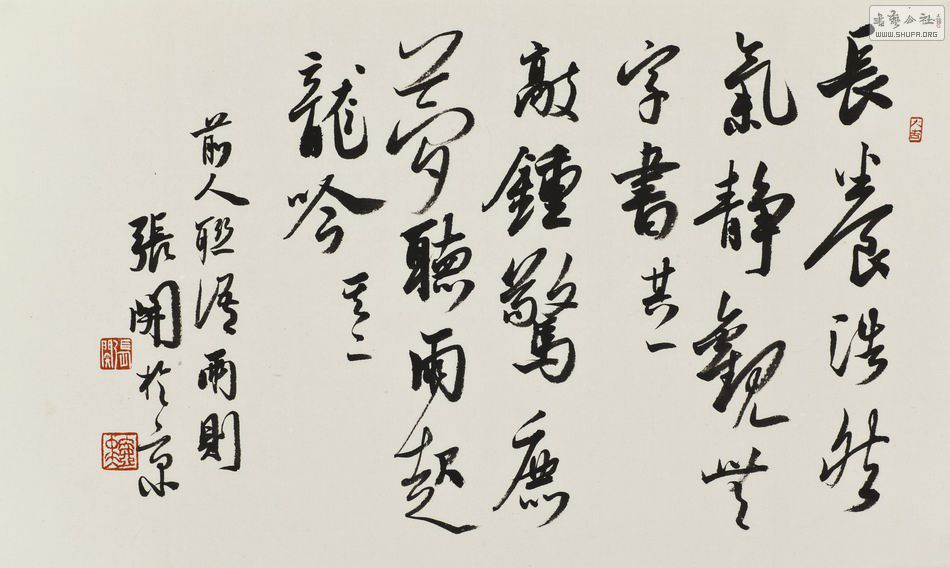 長養浩然
氣靜觀無
字書 其一
敲鍾驚鹿
夢聽雨起
龍吟 其二
前人聯語兩則
張開於京
書藝公社
WWW.SHUFA.ORG